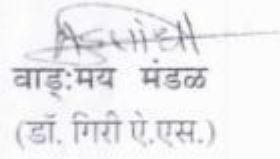 वाड्:मय मंडळ
(डॉ. गिरी ऐ.एस.)